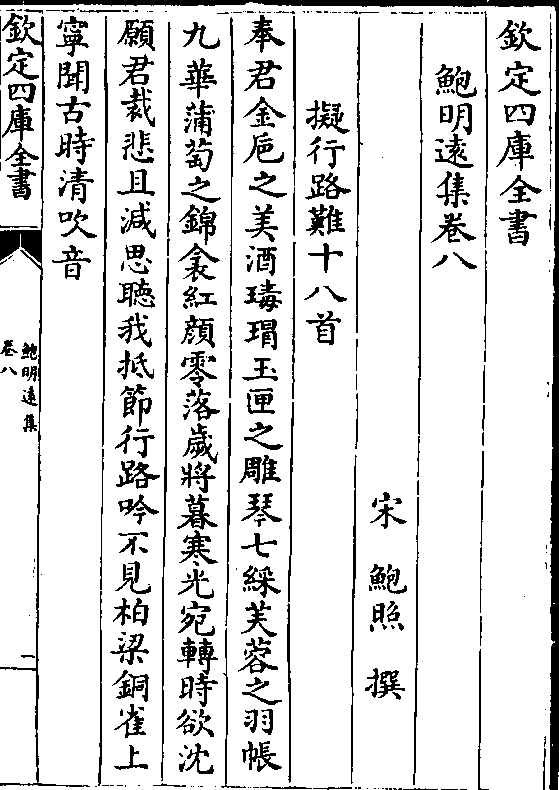 欽定四庫全書
鮑明遠集卷八
宋　鮑照　撰
擬行路難十八首
奉君金巵之美酒瑇瑁玉匣之雕琴七綵芙蓉之羽帳
九華蒲萄之錦衾紅顔零落歲將暮寒光宛轉時欲沈
願君裁悲且減思聽我抵節行路吟不見柏梁銅雀上
寧聞古時清吹音
欽定四庫全書
鮑明遠集
卷八
一